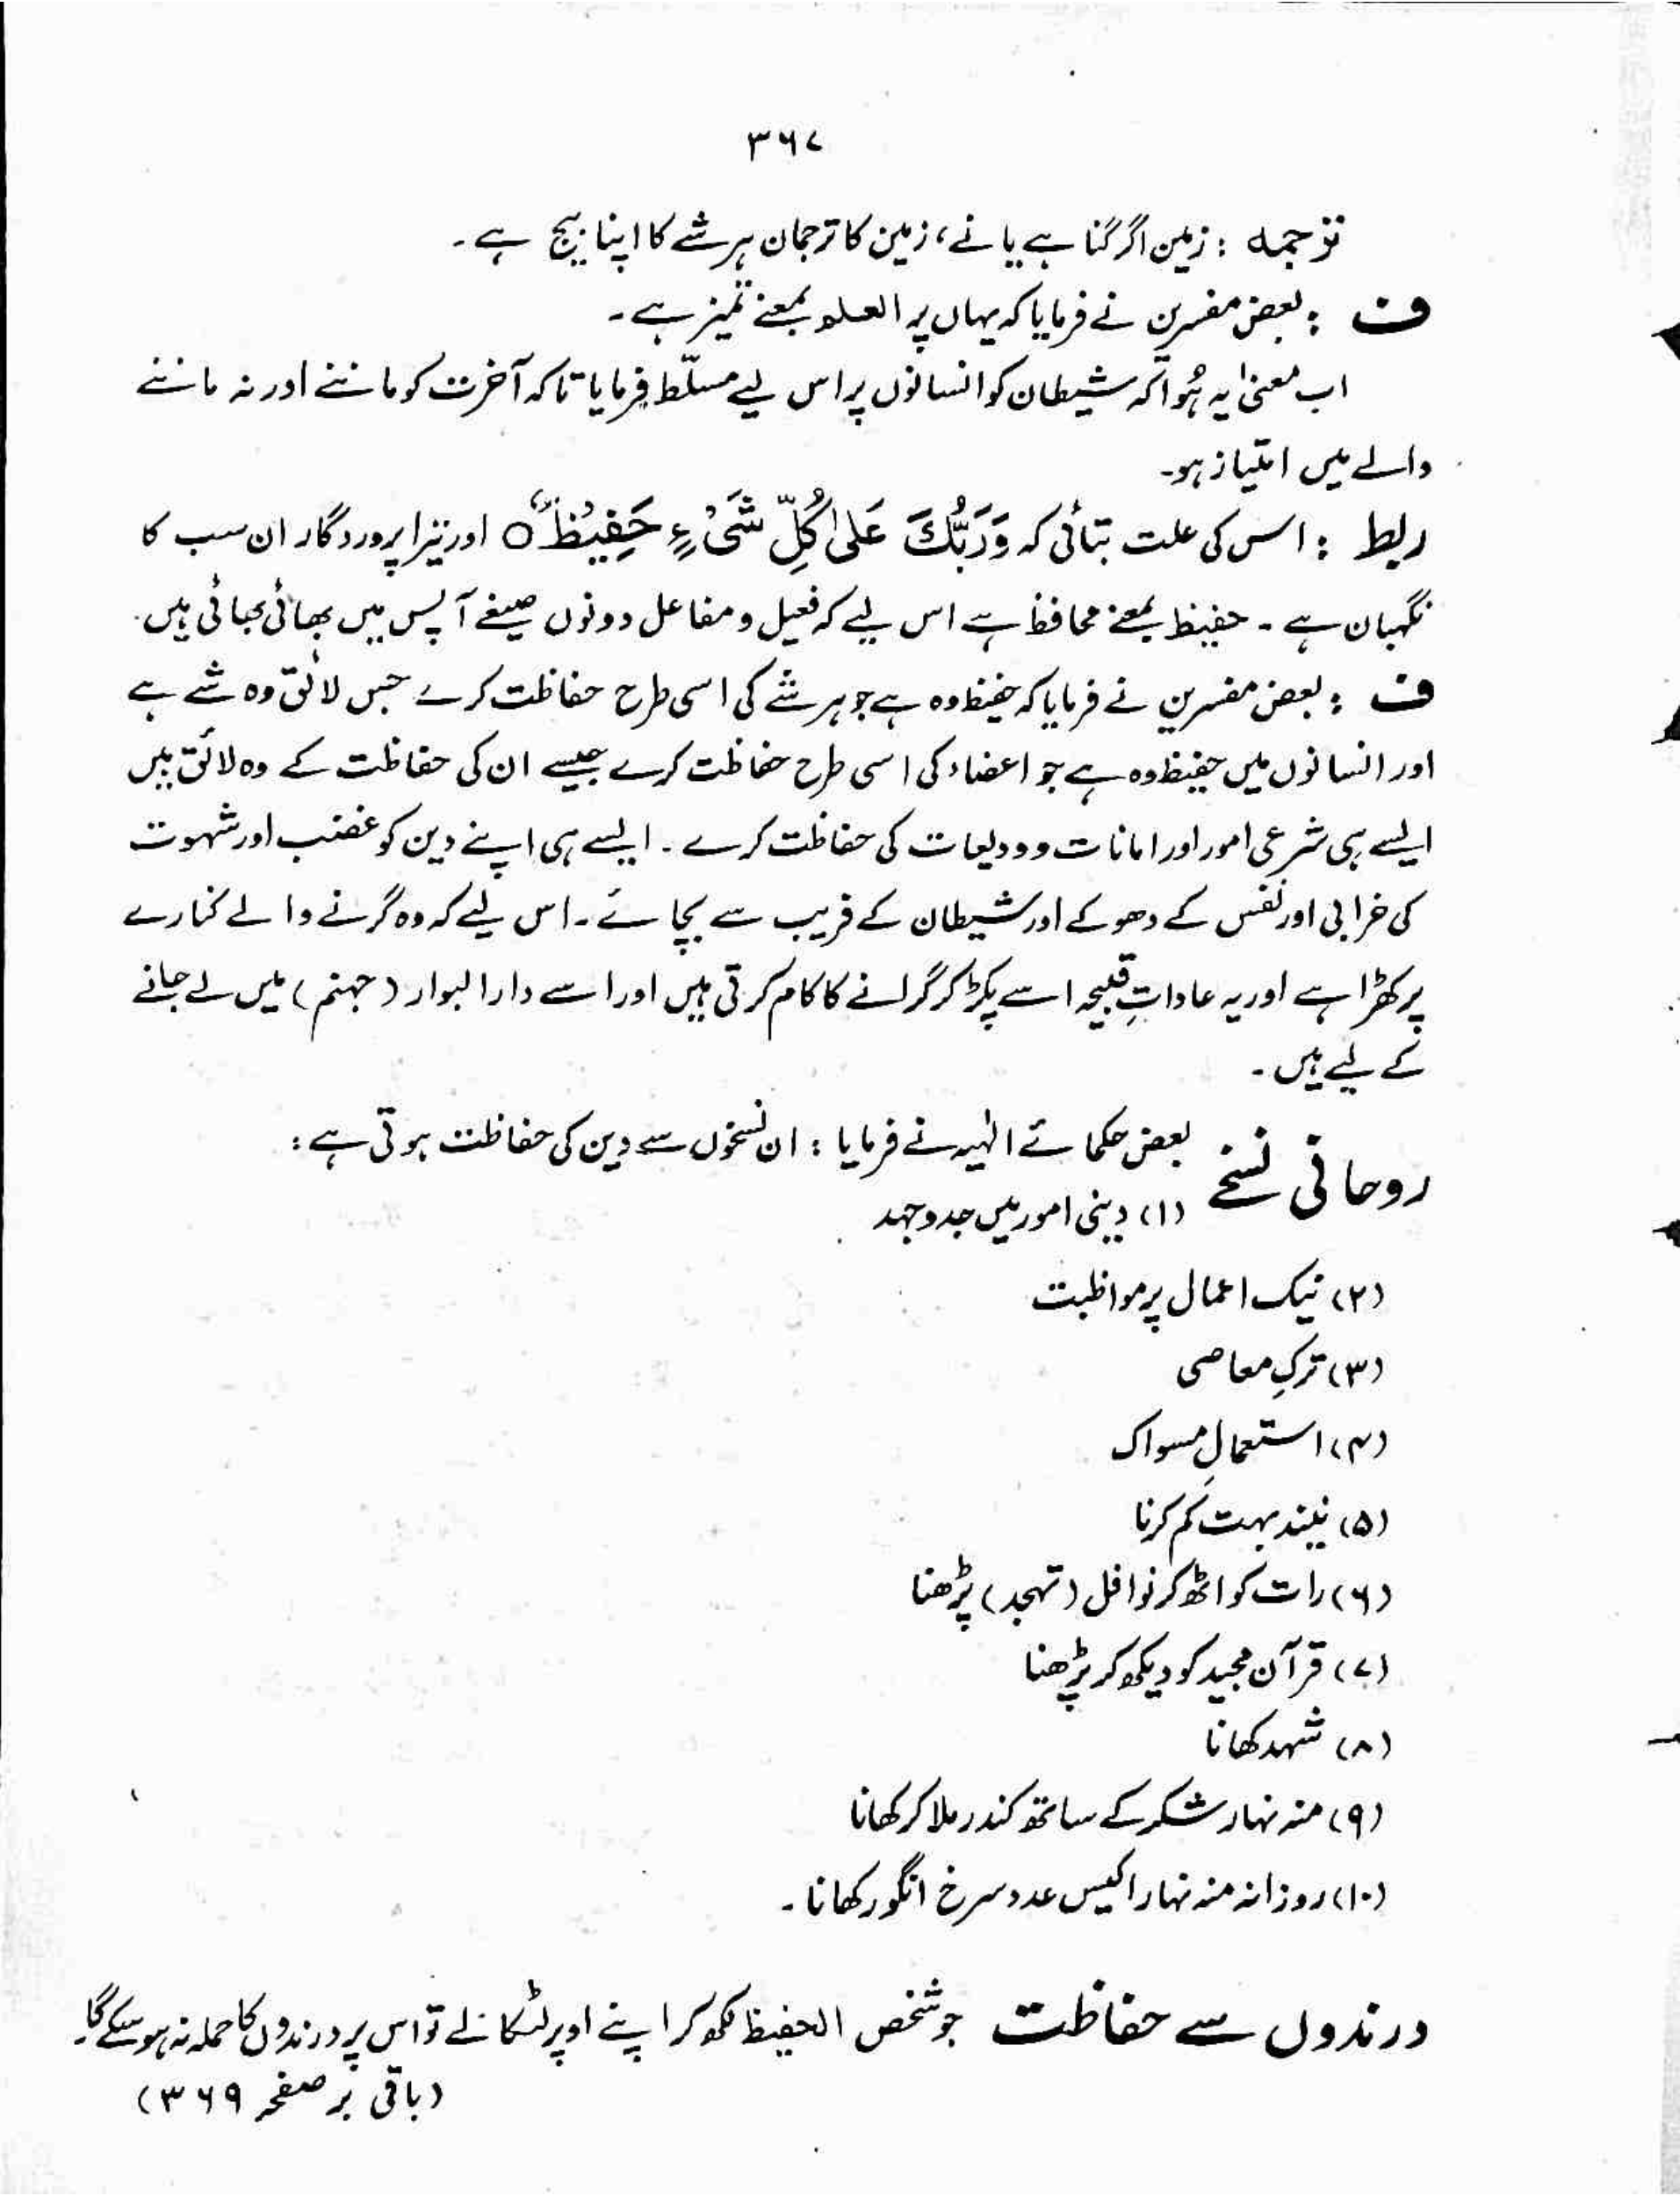 ۳۶۷
ترجمہ : زمین اگر گنا ہے یا نے، زمین کا ترجمان ہر شے کا اپنا بیج ہے۔
ف : بعض مفسرین نے فرمایا کہ یہاں پر العلم بمعنے تمیز ہے۔
اب معنیٰ یہ ہُوا کہ شیطان کو انسانوں پر اس لیے مسلّط فرمایا تاکہ آخرت کو ماننے اور نہ ماننے
والے میں امتیاز ہو۔
ربط : اس کی علت بتائی کہ وَرَبُّكَ عَلىٰ كُلِّ شَىْءٍ حَفِيْظٌ ۝ اور تیرا پروردگار ان سب کا
نگہبان ہے۔ حفیظ بمعنے محافظ ہے اس لیے کہ فعیل و مفاعل دونوں صیغے آپس میں بھائی بھائی ہیں۔
ف : بعض مفسرین نے فرمایا کہ حفیظ وہ ہے جو ہر شے کی اسی طرح حفاظت کرے جس لائق وہ شے ہے
اور انسانوں میں حفیظ وہ ہے جو اعضاء کی اسی طرح حفاظت کرے جیسے ان کی حفاظت کے وہ لائق ہیں
ایسے ہی شرعی امور اور امانات و ودیعات کی حفاظت کرے۔ ایسے ہی اپنے دین کو غضب اور شہوت
کی خرابی اور نفس کے دھوکے اور شیطان کے فریب سے بچائے۔ اس لیے کہ وہ گرنے والے کنارے
پر کھڑا ہے اور یہ عاداتِ قبیحہ اسے پکڑ کر گرانے کا کام کرتی ہیں اور اسے دارالبوار (جہنم) میں لے جانے
کے لیے ہیں۔
روحانی نسخے بعض حکمائے الٰہیہ نے فرمایا : ان نسخوں سے دین کی حفاظت ہوتی ہے :
(۱) دینی امور میں جدوجہد
(۲) نیک اعمال پر مواظبت
(۳) ترکِ معاصی
(۴) استعمالِ مسواک
(۵) نیند بہت کم کرنا
(۶) رات کو اٹھ کر نوافل (تہجد) پڑھنا
(۷) قرآن مجید کو دیکھ کر پڑھنا
(۸) شہد کھانا
(۹) منہ نہار شکر کے ساتھ کندر ملا کر کھانا
(۱۰) روزانہ منہ نہار اکیس عدد سرخ انگور کھانا۔
درندوں سے حفاظت جو شخص الحفیظ لکھ کر اپنے اوپر لٹکا لے تو اس پر درندوں کا حملہ نہ ہو سکے گا۔
(باقی بر صفحہ ۳۶۹)